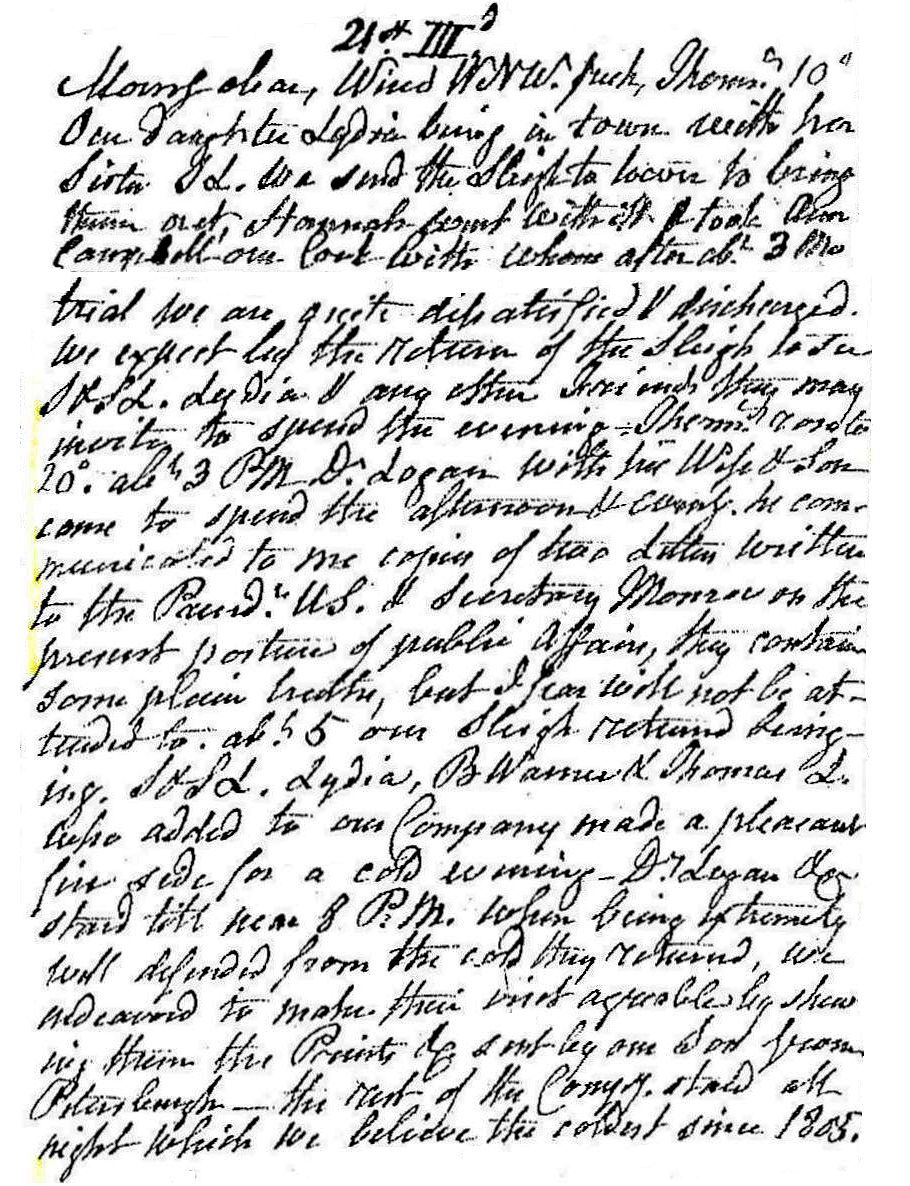 21st III.d
Morng clear, Wind WNW. fresh, Thermr. 10°
Our Daughter Lydia being in town with her
Sister SL. we send the Sleigh to town to bring
them out, Hannah went with it & took Ann
Campbell our Cook with whom after abt. 3 Mo
trial we are quite disatisfied & discharged.
We expect by the return of the Sleigh to see
J & SL. Lydia & any other Friends they may
invite, to spend the evening - Thermr. rose to
20°. abt. 3 PM Dr. Logan with his Wife & Son
came to spend the afternoon & eveng. he com-
municated to me copies of two Letters written
to the Presidt. US. & Secretary Monroe on the
present posture of public Affairs, they contain
some plain truths, but I fear will not be at-
tended to. abt. 5 our Sleigh returned bring-
ing. J & SL. Lydia, B Warner & Thomas L.
who added to our Company made a pleasant
fire side for a cold evening - Dr Logan &c
staid till near 8 P.M. when being extremely
well defended from the cold they returned, we
endeavord to make their visit agreable by shew
ing them the Prints &c sent by our Son from
Petersburgh - the rest of the Compy. staid all
night which we believe the coldest since 1805.